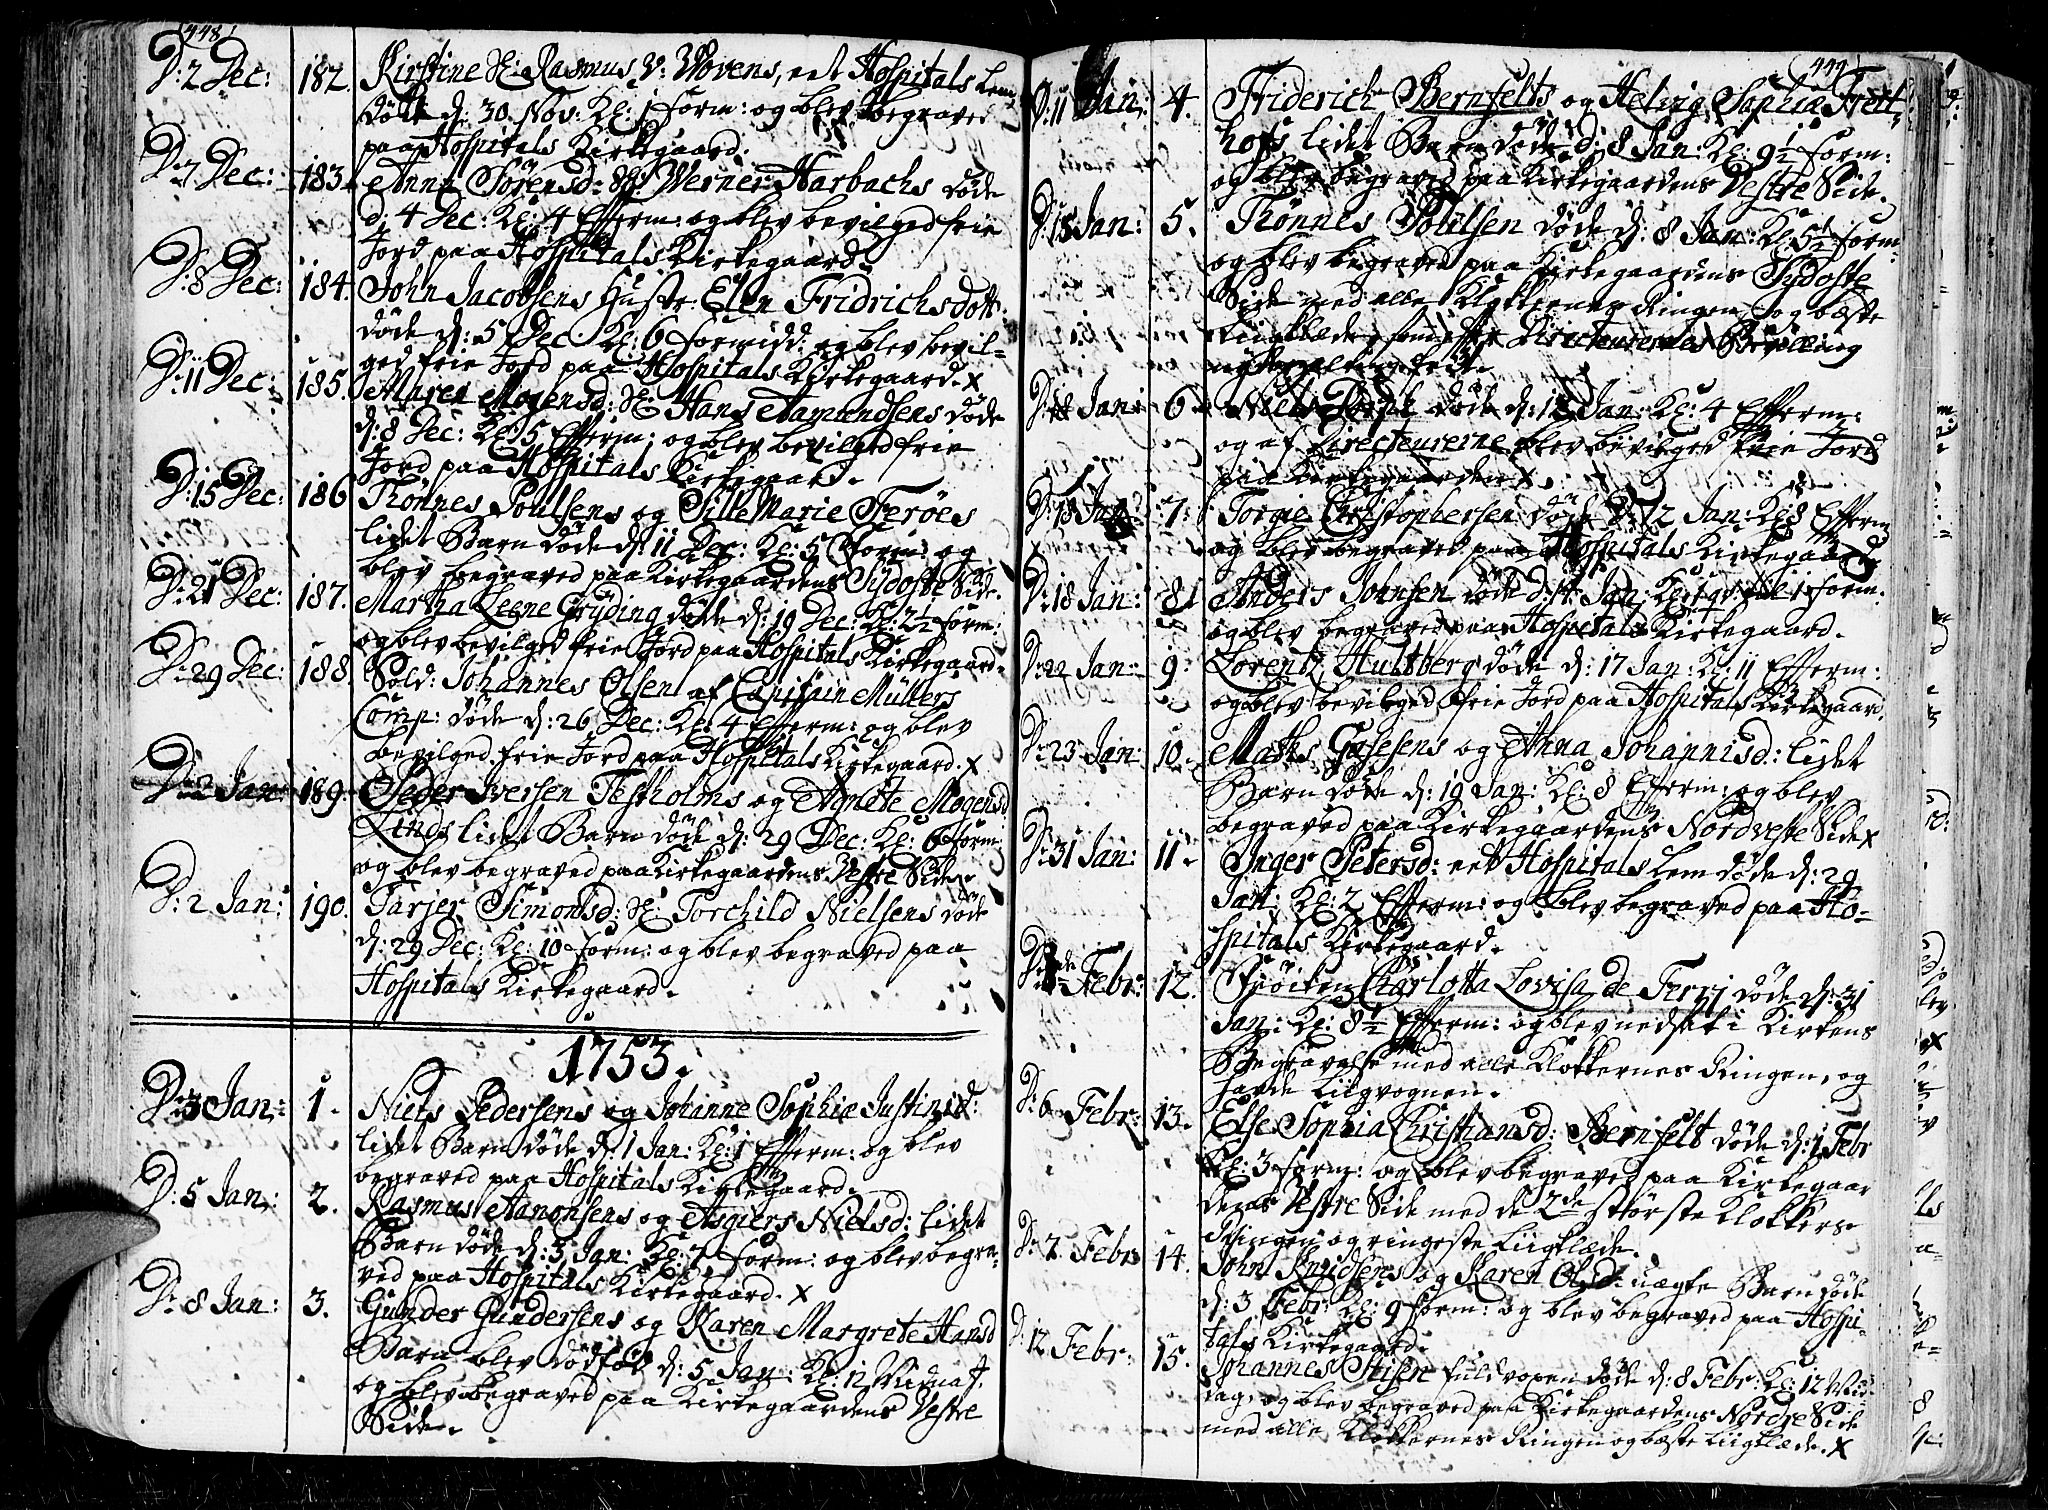 448
D: 2 Dec: 182. Kirstine Sl: Rasmus V: Wovens, eet Hospitals Lem
døde d: 30. Nov: Kl: 1 form: og blev begraved
paa Hospitals Kirkegaard.
D: 7 Dec: 183. Anne Sörensd: Sl: Werner Harbachs døde
d: 4 Dec: Kl: 4 Efferm: og blev bevilged frie
Jord paa Hospitals Kirkegaard
D: 8 Dec: 184. John Jacobsens Hustr: Elen Fridrichsdott:
døde d: 5 Dec Kl: 6 formidd: og blev bevil-
ged frie Jord paa Hospitals Kirkegaard. x
D: 11 Dec: 185. Maren Mogensd: Sl: Hans Aamundsens døde
d: 8 Dec: Kl: 5 Efferm: og blev bevilged frie
Jord paa Hospitals Kirkegaard.
D: 15 Dec: 186 Tönnes Poulsens og Sille Marie Feröes
lidet Barn døde d: 11 Dec: Kl: 5 form: og
blev begraved paa Kirkegaardens Sydoste Side.
D: 21 Dec: 187. Martha Leene Gryding døde d: 19 Dec: Kl: 2½ form:
og blev bevilged frie Jord paa Hospitals Kirkegaard.
D: 29 Dec: 188 Sold: Johannes Olsen af Capitain Müllers
Comp: døde d: 26 Dec: Kl: 4 Efferm: og blev
bevilged frie Jord paa Hospitals Kirkegaard. x
D: 2 Jan: 189. Peder Iversen Testholms og Agnete Mogensd
Linds lidet Barn døde d: 29 Dec: Kl: 6 form:
og blev begraved paa Kirkegaardens Vestre Side.
D: 2 Jan: 190. Tarjer Simonsd: Sl: Torchild Nielsens døde
d: 29 Dec: Kl: 10 form: og blev begraved paa
Hospitals Kirkegaard.
1753.
D: 3 Jan: 1. Niels Pedersens og Johanne Sophia Justinsd:
lidet Barn døde d: 1 Jan: Kl: 1 Efferm: og blev
begraved paa Hospitals Kirkegaard.
D: 5 Jan: 2. Rasmus Aanonsens og Asgiers Nielsd: lidet
Barn døde d: 3 Jan: Kl: 7 form: og blev begra-
ved paa Hospitals Kirkegaard. x
D: 8 Jan: 3. Gunder Gundersens og Karen Margrete Hansd
Barn blev dødfød d: 5 Jan: Kl: 12 Midnat.
og blev begraved paa Kirkegaardens Vestre
Side.
449
D: 11 Jan: 4. Friderich Bernfelts og Helvig Sophia Freit-
hofs lidet Barn døde d: 8 Jan: Kl: 9½ form:
og blev begraved paa Kirkegaardens Vestre Side.
D: 15 Jan: 5. Tönnes Poulsen døde d: 8 Jan: Kl: 5½ form:
og blev begraved paa Kirkegaardens Sydoste
Side med alle Klokkernes Ringen og bæste
Liigklæde, som efter Directeurernes Bevilling
D: 18 Jan: 6 Niels døde d: 13 Jan: Kl: 4 Efferm:
og af Directeurerne blev bevilged frie Jord
paa Kirkegaarden x.
D: 18 Jan: 7. Torgie Christophersen døde d: 12 Jan: Kl: 8 Efferm
og blev begraved paa Hospitals Kirkegaard.
D: 18 Jan: 8. Anders Johnsen døde d: 14 Jan: Kl: form:
og blev begraved paa Hospitals Kirkegaard.
D: 22 Jan: 9. Lorentz Hultberg døde d: 17 Jan: Kl: 11 Efferm:
og blev bevilged frie Jord paa Hospitals Kirkegaard.
D: 23 Jan: 10. Maths Gasesens og Anna Johannisd: lidet
Barn døde d: 19 Jan: Kl: 8 Efferm: og blev
begraved paa Kirkegaardens Nordveste Side x
D: 31 Jan: 11. Inger Petersd: eet Hospitals Lem døde d: 29
Jan: Kl: 2 Efferm: og blev begraved paa Ho-
spitals Kirkegaard.
Febr: 12. Frøiken Charlotta Lovisa de Ferrj døde d: 31
Jan: Kl: 8½ Efferm: og blev nedsat i Kirkens
Begravelse med alle Klokkernes Ringen, og
havde Liigvognen.
D: 6 Febr: 13. Else Sophia Christiansd: Bernfelt døde d: 1 Febr
Kl: 3 form: og blev begraved paa Kirkegaar
dens Vestre Side med de 2de største Klokkers
Ringen og ringeste Liigklæde.
D: 7 Febr: 14. John Knudsens og Karen Olsd: uægte Barn døde
d: 3 Febr: Kl: 9 form: og blev begraved paa Hospi-
tals Kirkegaard.
D: 12 Febr: 15. Johannes Stisen fuldvoxen døde d: 8 Febr: Kl: 12 Mid-
dag, og blev begraved paa Kirkegaardens Nordre Side
med alle Klokkernes Ringen og bæste Liigklæde. x